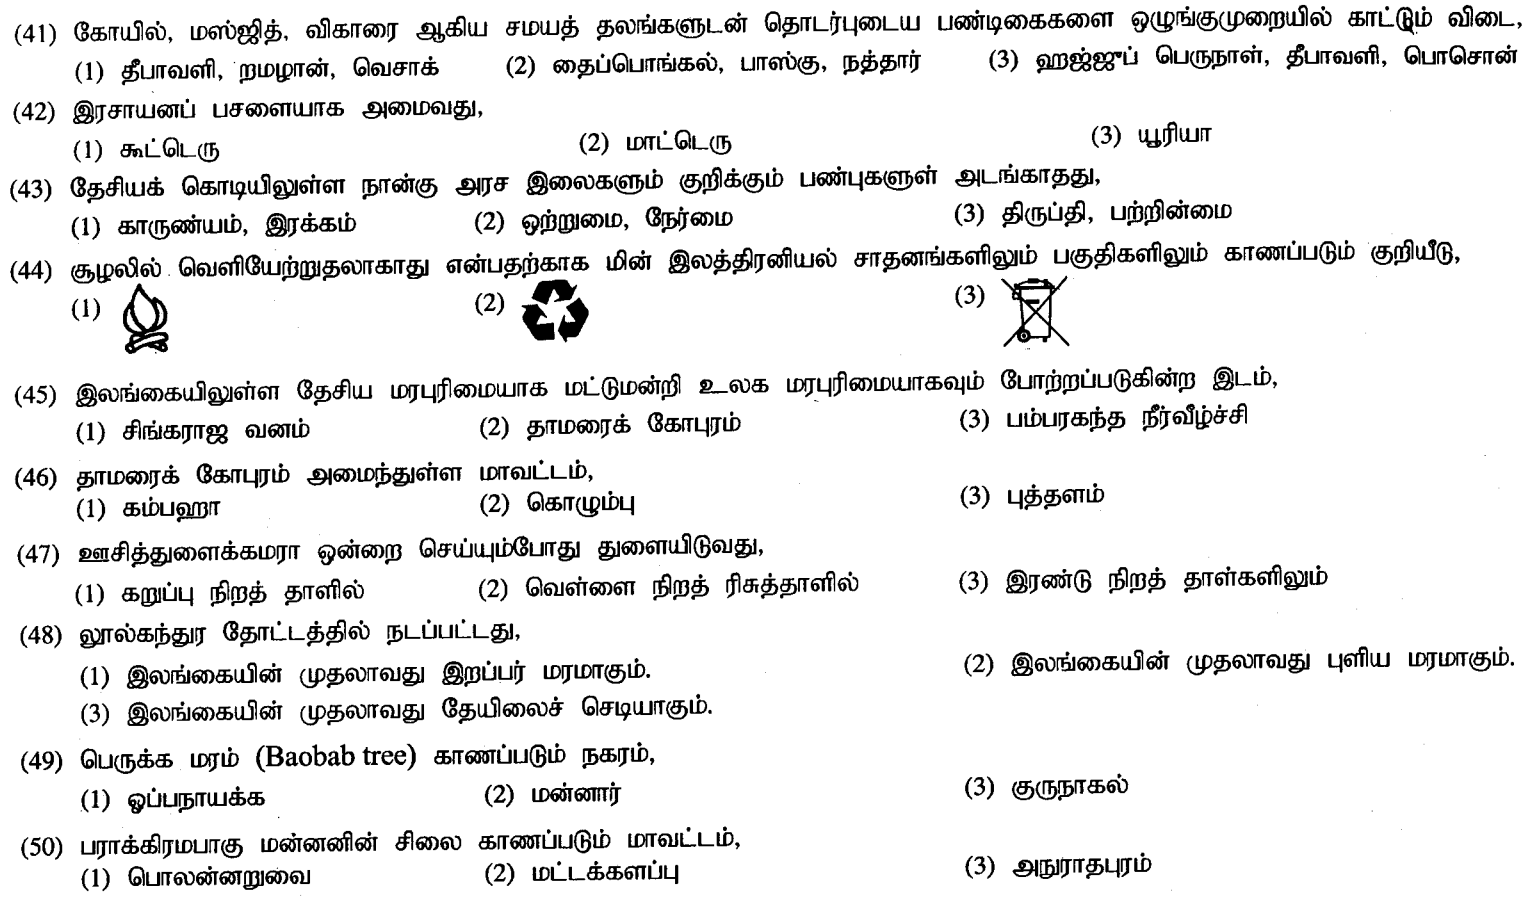 (41) கோயில், மஸ்ஜித், விகாரை ஆகிய சமயத் தலங்களுடன் தொடர்புடைய பண்டிகைகளை ஒழுங்குமுறையில் காட்டும் விடை,
(1) தீபாவளி, றமழான், வெசாக் (2) தைப்பொங்கல், பாஸ்கு, நத்தார் (3) ஹஜ்ஜுப் பெருநாள், தீபாவளி, பொசொன்
(42) இரசாயனப் பசளையாக அமைவது,
(1) கூட்டெரு (2) மாட்டெரு (3) யூரியா
(43) தேசியக் கொடியிலுள்ள நான்கு அரச இலைகளும் குறிக்கும் பண்புகளுள் அடங்காதது,
(1) காருண்யம், இரக்கம் (2) ஒற்றுமை, நேர்மை (3) திருப்தி, பற்றின்மை
(44) சூழலில் வெளியேற்றுதலாகாது என்பதற்காக மின் இலத்திரனியல் சாதனங்களிலும் பகுதிகளிலும் காணப்படும் குறியீடு,
(1) (2) (3)
(45) இலங்கையிலுள்ள தேசிய மரபுரிமையாக மட்டுமன்றி உலக மரபுரிமையாகவும் போற்றப்படுகின்ற இடம்,
(1) சிங்கராஜ வனம் (2) தாமரைக் கோபுரம் (3) பம்பரகந்த நீர்வீழ்ச்சி
(46) தாமரைக் கோபுரம் அமைந்துள்ள மாவட்டம்,
(1) கம்பஹா (2) கொழும்பு (3) புத்தளம்
(47) ஊசித்துளைக்கமரா ஒன்றை செய்யும்போது துளையிடுவது,
(1) கறுப்பு நிறத் தாளில் (2) வெள்ளை நிறத் ரிசுத்தாளில் (3) இரண்டு நிறத் தாள்களிலும்
(48) லூல்கந்துர தோட்டத்தில் நடப்பட்டது,
(1) இலங்கையின் முதலாவது இறப்பர் மரமாகும். (2) இலங்கையின் முதலாவது புளிய மரமாகும்.
(3) இலங்கையின் முதலாவது தேயிலைச் செடியாகும்.
(49) பெருக்க மரம் (Baobab tree) காணப்படும் நகரம்,
(1) ஓப்பநாயக்க (2) மன்னார் (3) குருநாகல்
(50) பராக்கிரமபாகு மன்னனின் சிலை காணப்படும் மாவட்டம்,
(1) பொலன்னறுவை (2) மட்டக்களப்பு (3) அநுராதபுரம்